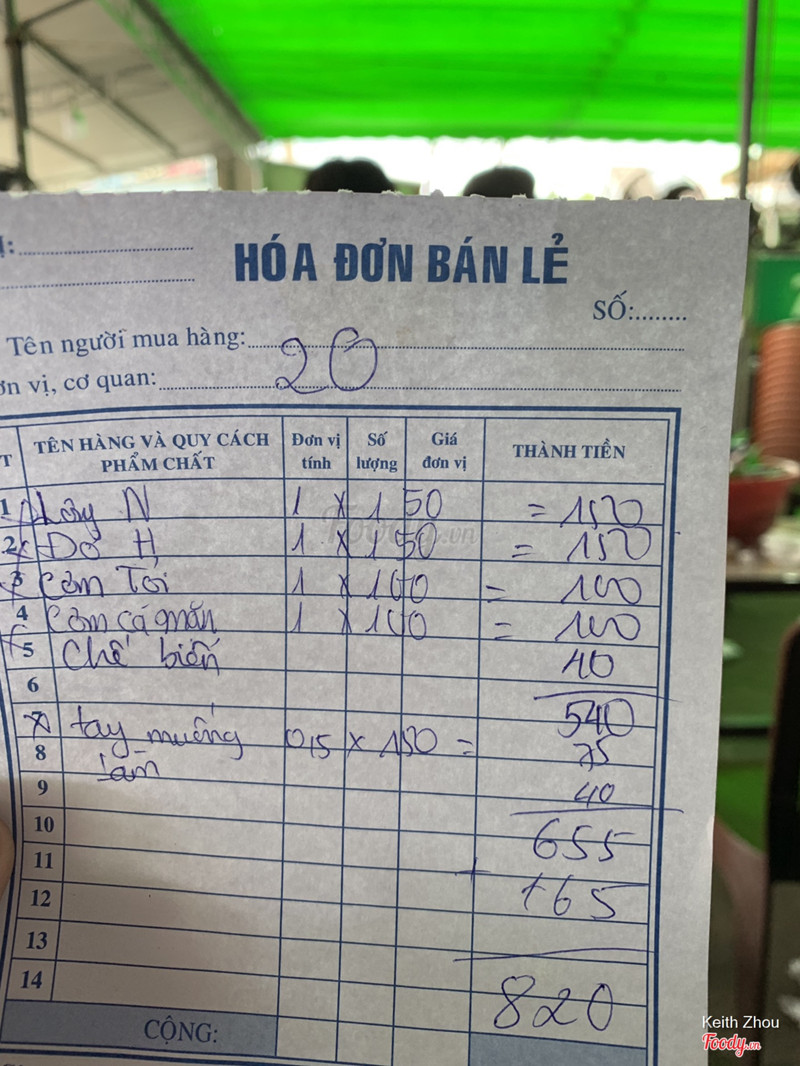 HÓA ĐƠN BÁN LẺ
SỐ:........
Tên người mua hàng: 20
ơn vị, cơ quan:
T TÊN HÀNG VÀ QUY CÁCH PHẨM CHẤT Đơn vị tính Số lượng Giá đơn vị THÀNH TIỀN
1 N 1 x 150 = 150
2 1 x 150 = 150
3 Cơm Tỏi 1 x 100 = 100
4 Cơm cá mặn 1 x 100 = 100
5 Chế biến 40
6 540
7 tay muống 0,5 x 150 = 75
8
9 40
10 655
11
12 +65
13
14 820
CỘNG:
Foody.vn
Keith Zhou
Foody.vn